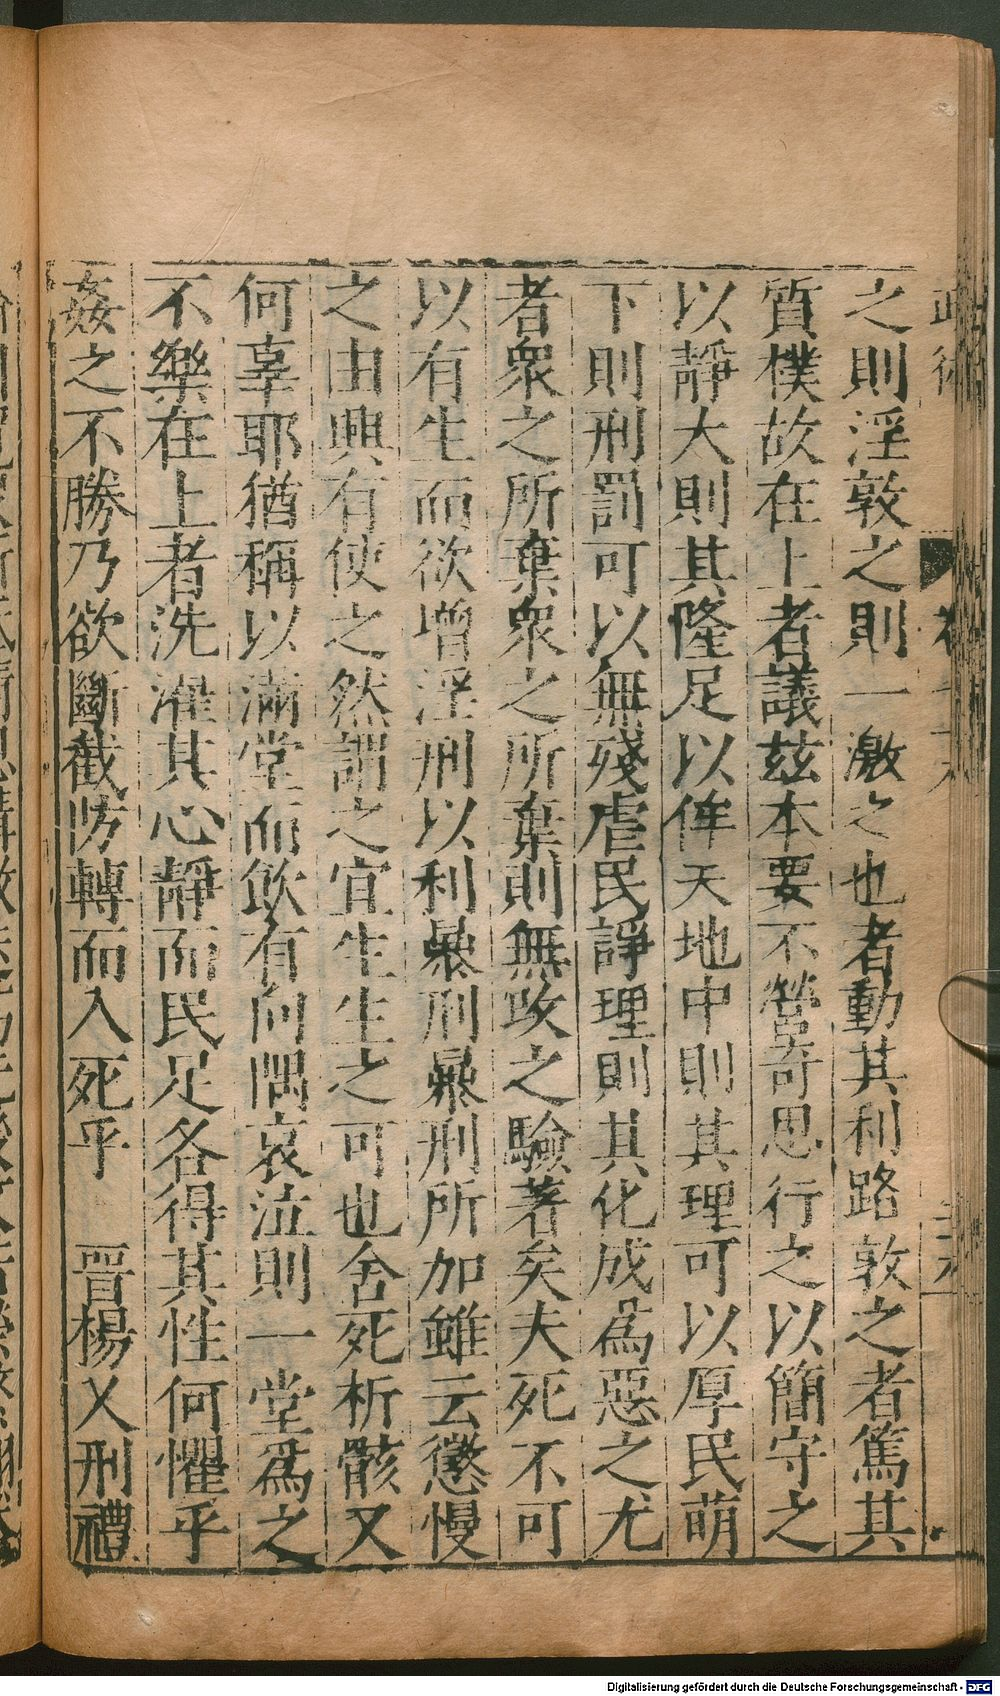 之則淫敦之則一激之也者動其利路敦之者篤其
質樸故在上者議茲本要不營奇思行之以簡守之
以靜大則其隆足以侔天地中則其理可以厚民萌
下則刑罰可以無殘虐民諍理則其化成為惡之尤
者衆之所棄衆之所棄則無攻之驗著矣夫死不可
以有生而欲增淫刑以利暴刑暴刑所加雖云懲慢
之由興有使之然謂之宜生生之可也舍死析骸又
何辜耶猶稱以滿堂而飲有向隅哀泣則一堂為之
不樂在上者洗濯其心靜而民足各得其性何懼乎
姦之不勝乃欲斷截防轉而入死乎　晉楊乂刑禮
Digitalisierung gefördert durch die Deutsche Forschungsgemeinschaft - DFG